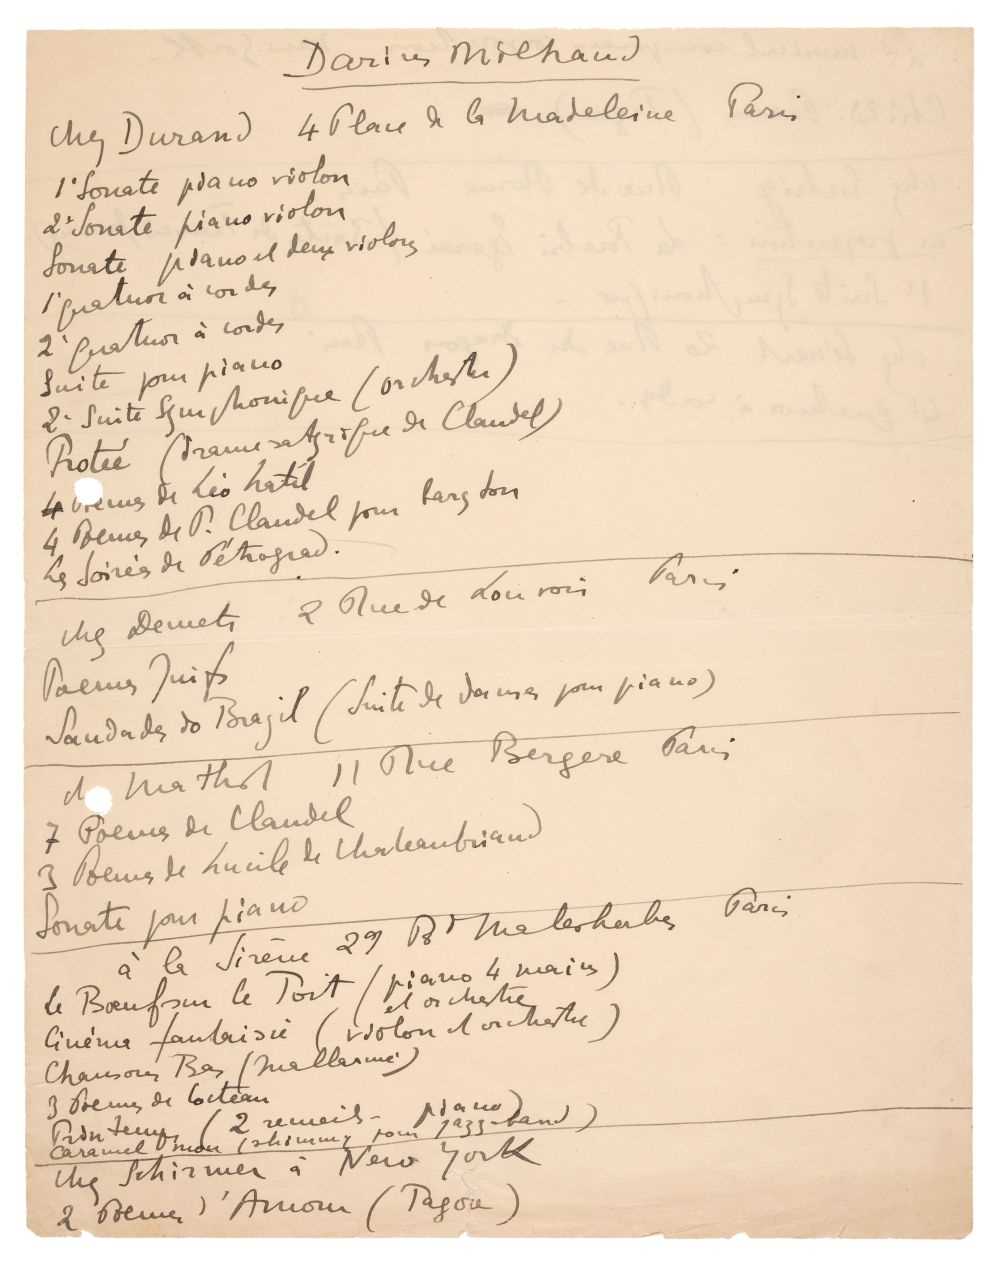 Darius Milhaud
chez Durand 4 Place de la Madeleine Paris
1e Sonate piano violon
2e Sonate piano violon
Sonate piano et deux violons
1e quatuor à cordes
2e quatuor à cordes
Suite pour piano
2e Suite Symphonique (orchestre)
Protée (drame satyrique de Claudel)
4 Poèmes de Léo Latil
4 Poemes de P. Claudel pour baryton
Les Soirées de Pétrograd.
chez Demets 2 Rue de Louvois Paris
Poemes Juifs
Saudades do Brazil (Suite de danses pour piano)
Mathot 11 Rue Bergere Paris
7 Poemes de Claudel
3 Poemes de Lucile de Chateaubriand
Sonate pour piano
à la Sirène 29 Bd Malesherbes Paris
le Bœuf sur le Toit (piano 4 mains)
et orchestre
Cinéma fantaisie (violon et orchestre)
Chansons Bas (Mallarmé)
3 Poemes de Cocteau
Printemps (2 recueils - piano)
Caramel mou (shimmy pour jazz-band)
chez Schirmer à New York
2 Poemes d'Amour (Tagore)